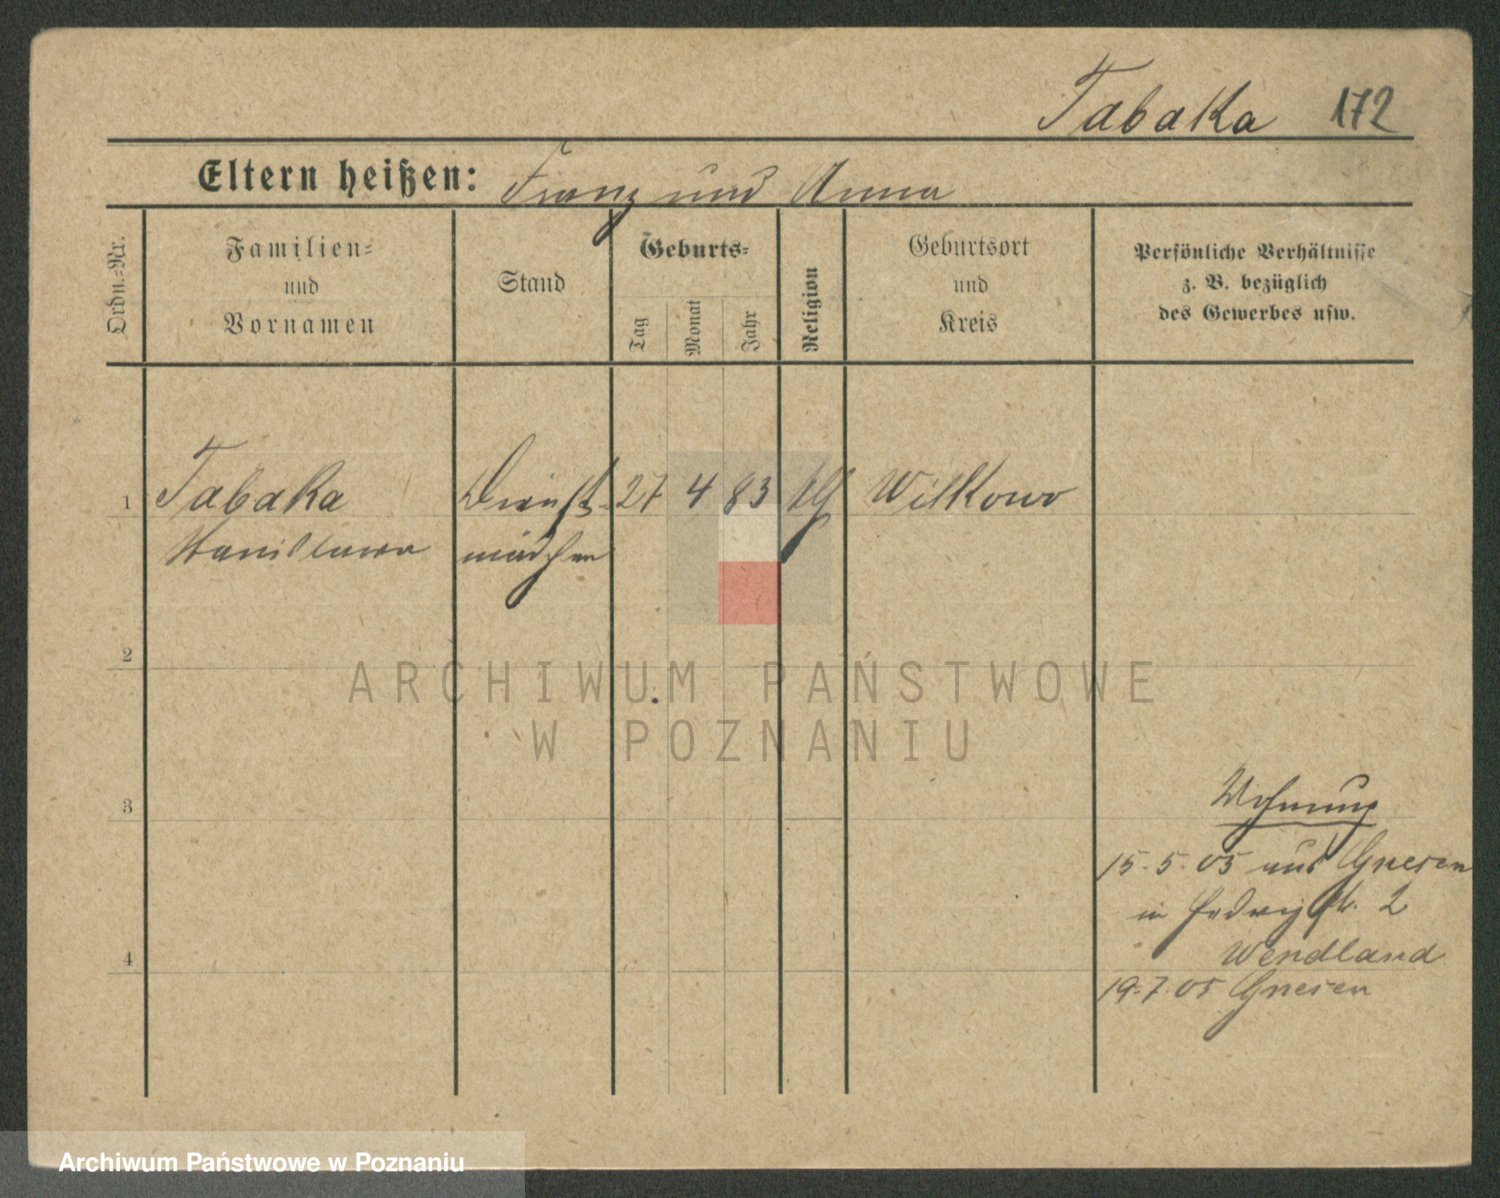 Tabaka 172
Eltern heißen: Franz und Anna
Ordn.-Nr.
Familien-
und
Vornamen
Stand
Geburts-
Tag
Monat
Jahr
Religion
Geburtsort
und
Kreis
Persönliche Verhältnisse
z. B. bezüglich
des Gewerbes usw.
1 Tabaka Dienst- 27 4 83 Wilkowo
Stanislawa mädchen
2
ARCHIWUM PAŃSTWOWE
W POZNANIU
3
Wohnung
15.5.05 aus Gnesen
in Hedwigstr. 2
Wendland
4
19.7.05 Gnesen
Archiwum Państwowe w Poznaniu